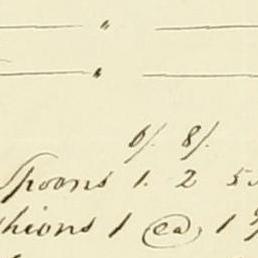 "
"
6/. 8/.
Spoons 1. 2 5
shions 1 ea, 1